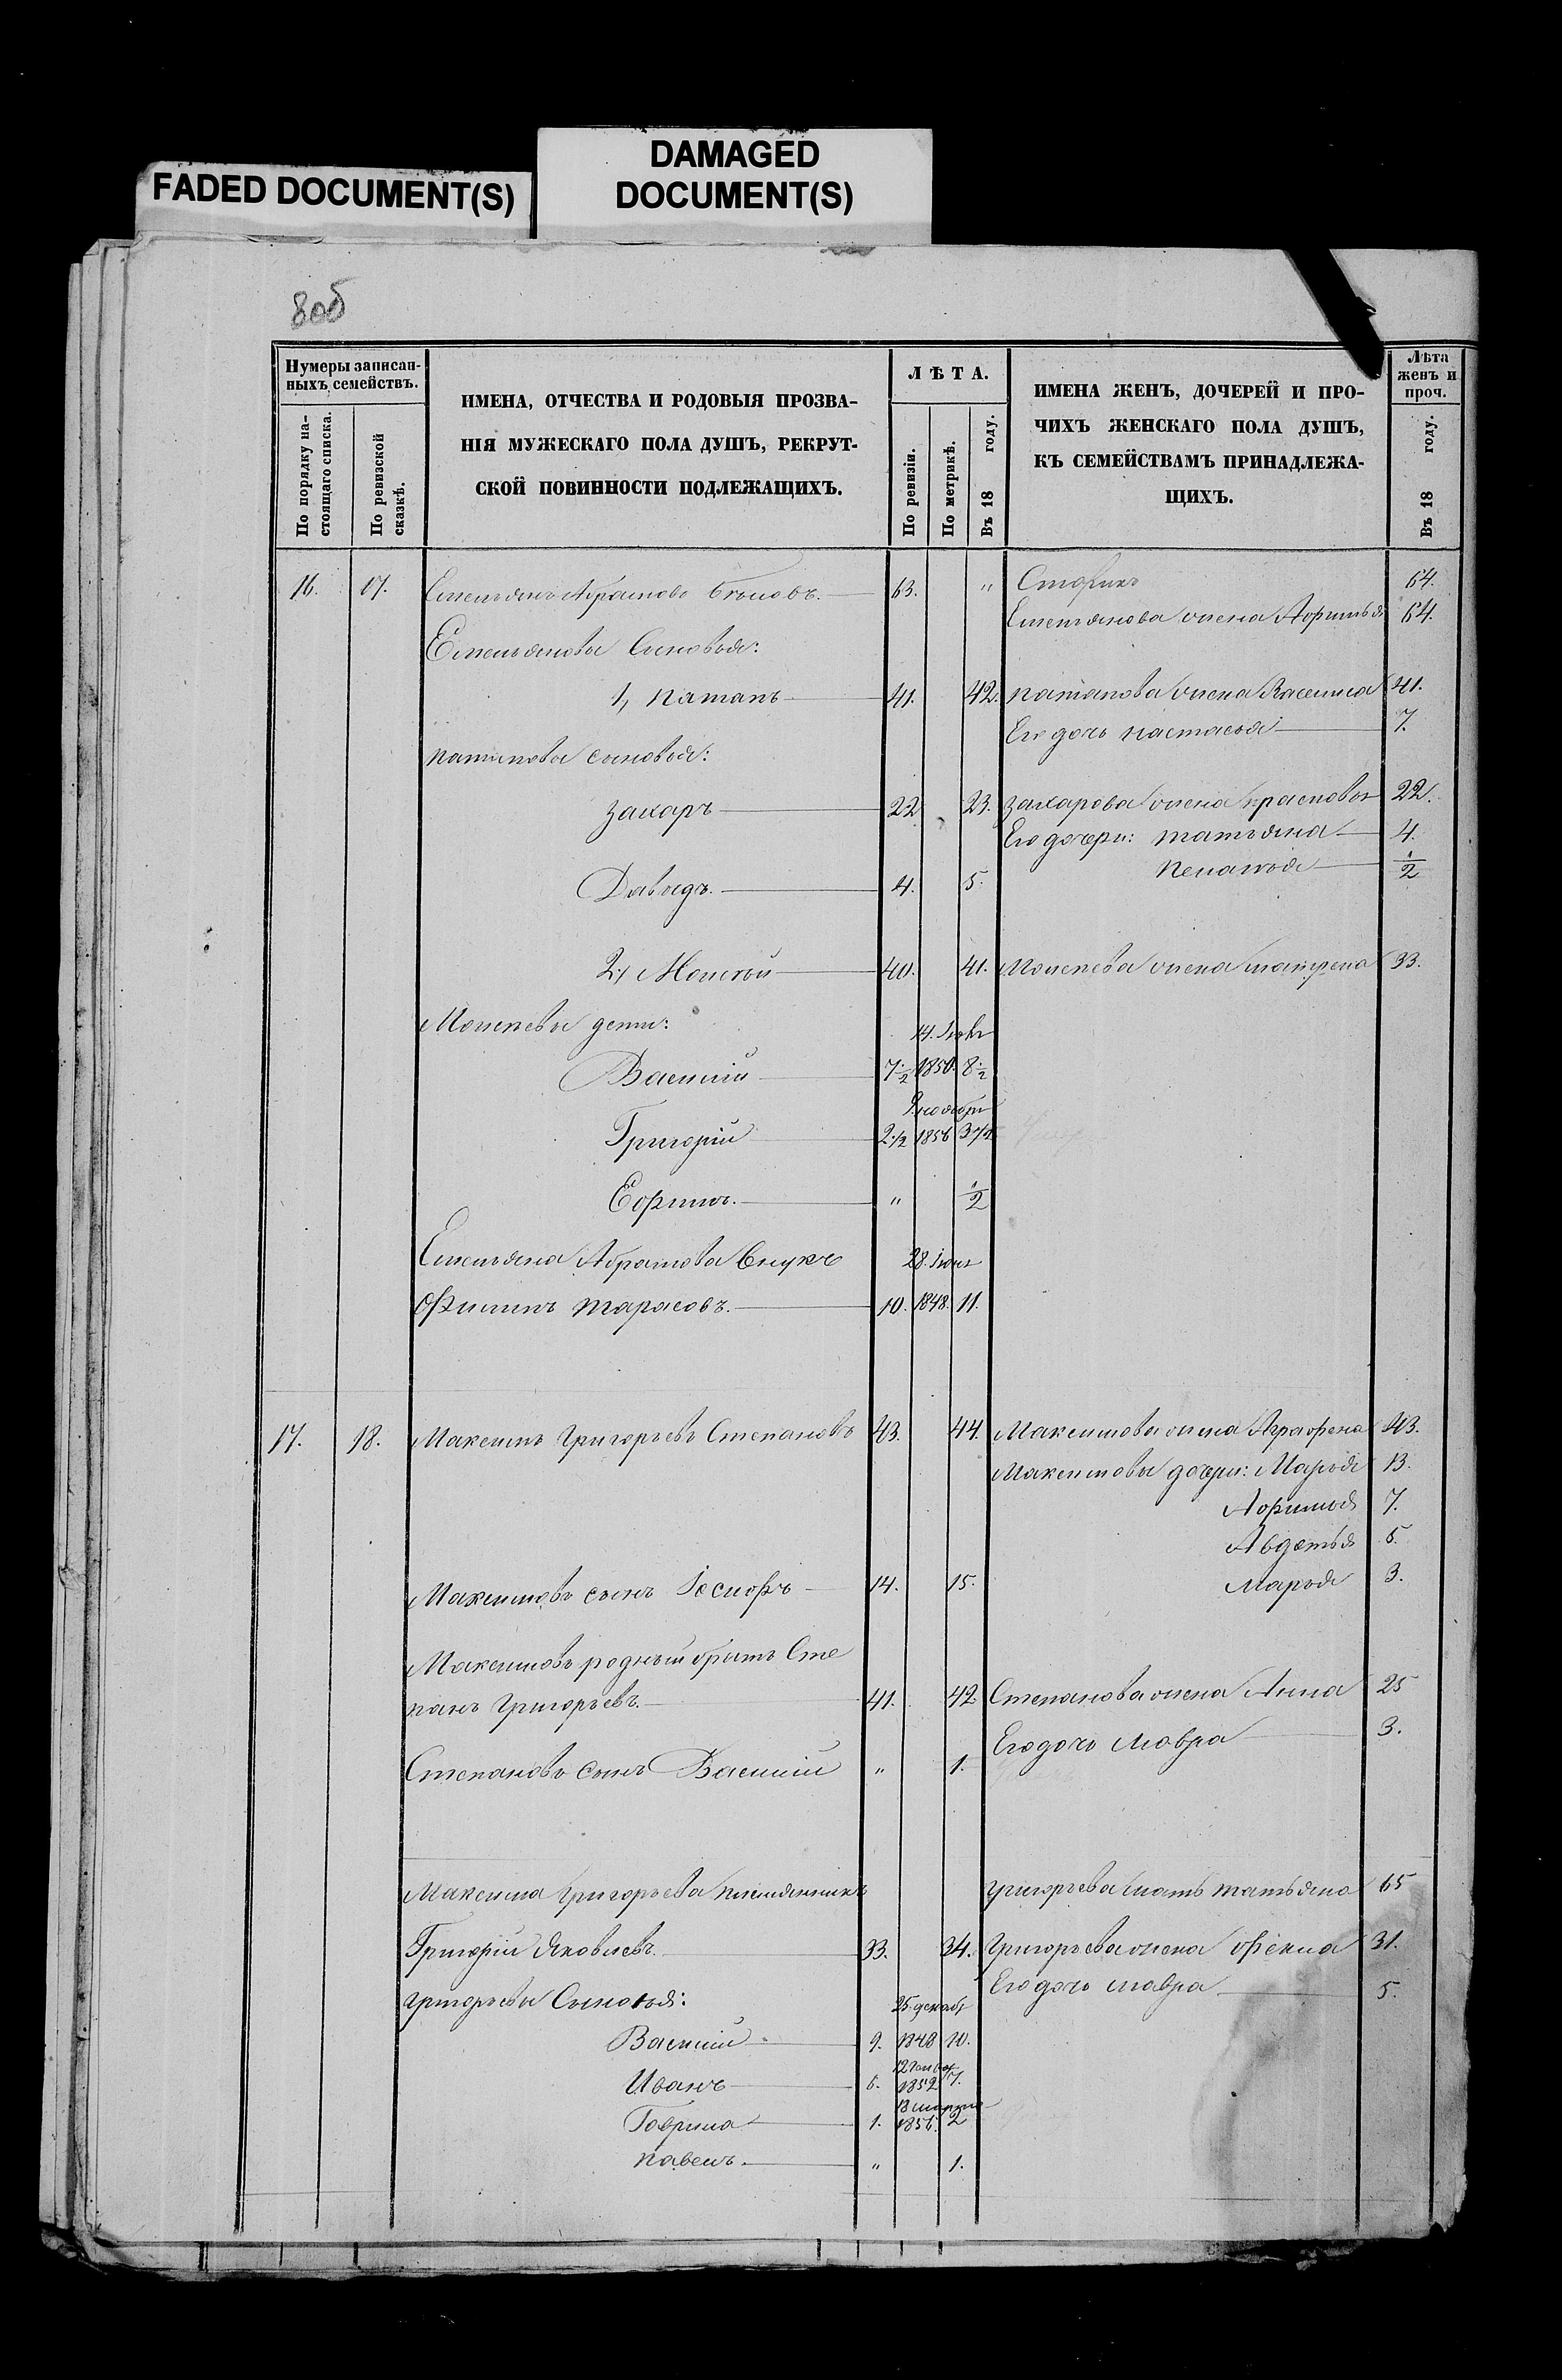 FADED DOCUMENT(S)
DAMAGED
DOCUMENT(S)
8об
Нумеры записан-
ныхъ семействъ.
По порядку на-
стоящаго списка.
По ревизской
сказкѣ.
ИМЕНА, ОТЧЕСТВА И РОДОВЫЯ ПРОЗВА-
НІЯ МУЖЕСКАГО ПОЛА ДУШЪ, РЕКРУТ-
СКОЙ ПОВИННОСТИ ПОДЛЕЖАЩИХЪ.
ЛѢТА.
По ревизіи.
По метрикѣ.
Въ 18 году.
ИМЕНА ЖЕНЪ, ДОЧЕРЕЙ И ПРО-
ЧИХЪ ЖЕНСКАГО ПОЛА ДУШЪ,
КЪ СЕМЕЙСТВАМЪ ПРИНАДЛЕЖА-
ЩИХЪ.
Лѣта
женъ и
проч.
Въ 18 году.
16. 17. Емельянъ Абрамовъ 63. " 64.
Емельянова жена Афимья 64.
Емельяновы Сыновья:
1, Патапъ 41. 42. Патапова жена 41.
Его дочь Настасья 7.
Патаповы сыновья:
Захаръ 22 23. Захарова жена Прасковья 22.
Его дочери: Татьяна 4.
Пелагѣя ½
Давыдъ. 4. 5.
2, Моисѣй 40. 41. Моисеева жена Матрена 33.
Моисеевы дети:
14. Іюля
Василій 7½ 1850. 8½
9 ноября
Григорій 2½ 1856 3½
Ефимъ. " ½
Емельяна Абрамова Внукъ 28. Іюля
Филипъ Тарасовъ. 10. 1848. 11.
17. 18. Максимъ Григорьевъ Степановъ 43. 44. Максимова жена Аграфена 43.
Максимовы дочери: Марья 13.
Афимья 7.
Авдотья 5.
Максимовъ сынъ Іосифъ 14. 15. Марья 3.
Максимовъ родный братъ Сте
панъ Григорьевъ. 41. 42. Степанова жена Анна 25
Его дочь Мавра 3.
Степановъ сынъ Василій " 1.
Максима Григорьева племянникъ Григорьева мать Татьяна 65
Григорій Яковлевъ. 33. 34. Григорьева жена Фекла 31.
Его дочь Мавра 5.
Григорьевы Сыновья: 25 декабр
Василій 9. 1848 10.
12 Январ
Иванъ 6. 1852 7.
18 марта
Гаврила 1. 1856. 2
Павелъ. " 1.